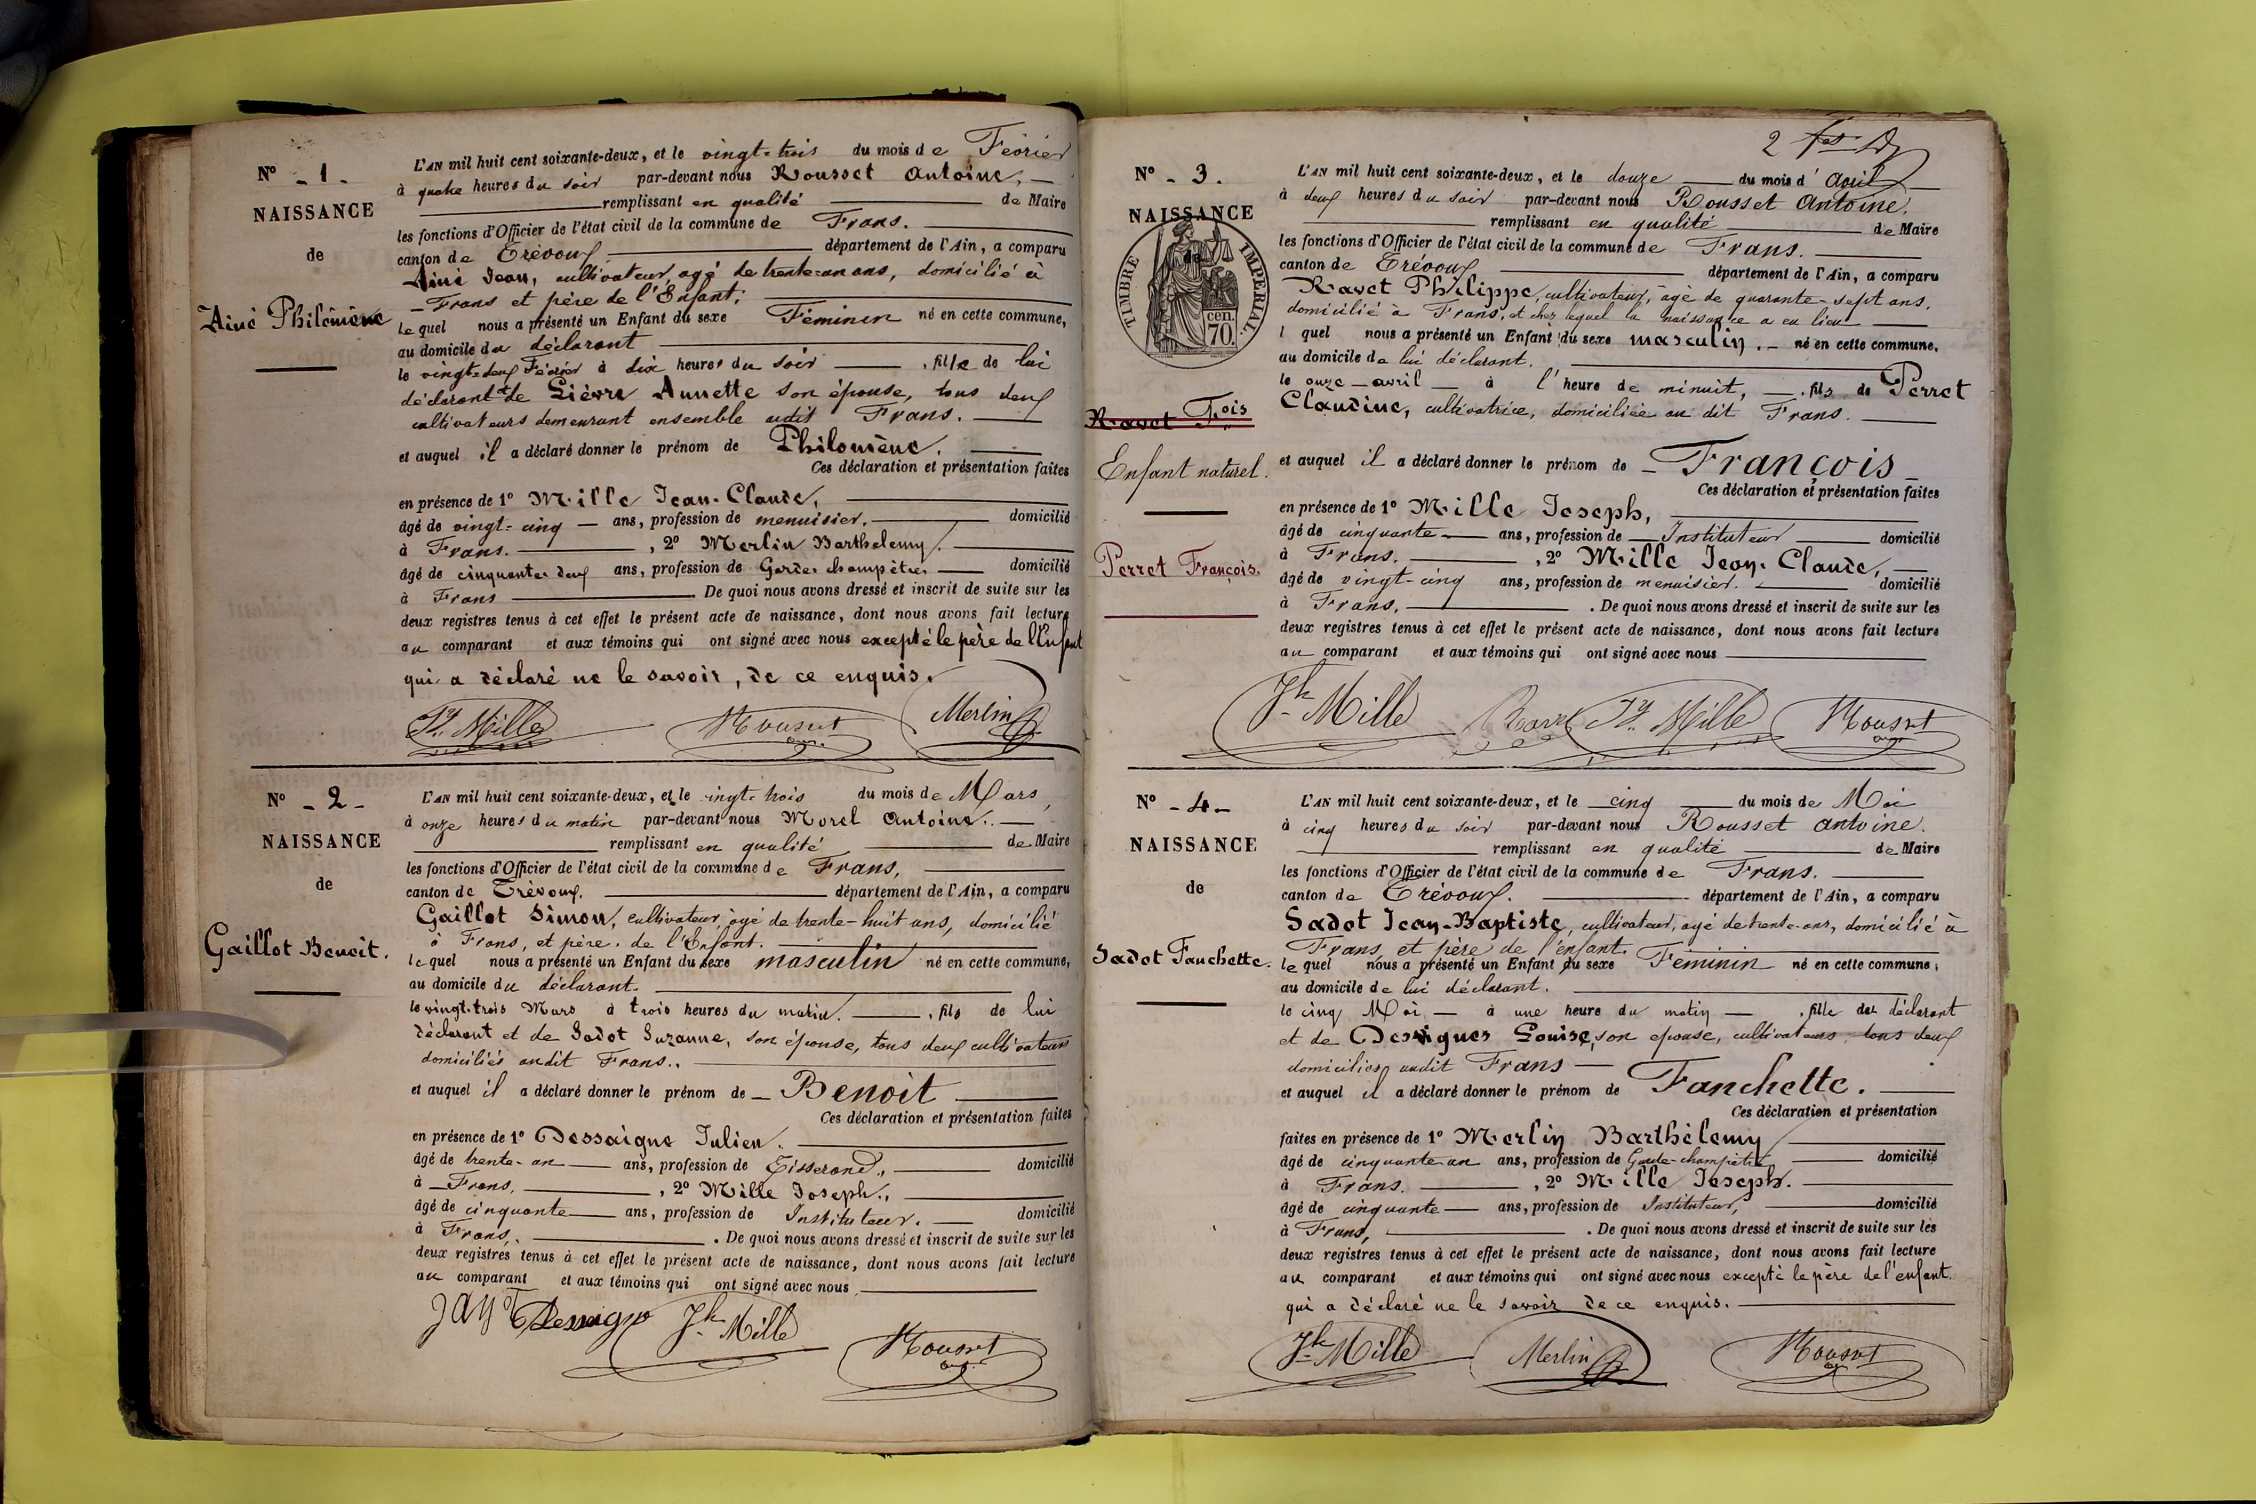 N° - 1 -
NAISSANCE
de
Ainé Philomène
L'AN mil huit cent soixante-deux, et le vingt-trois du mois de Février
à quatre heures du soir par-devant nous Rousset Antoine,
remplissant en qualité de Maire
les fonctions d'Officier de l'état civil de la commune de Frans.
canton de Trévoux. département de l'Ain, a comparu
Ainé Jean, cultivateur, agé de trente-un ans, domicilié à
Frans et père de l'Enfant;
lequel nous a présenté un Enfant du sexe Féminin né en cette commune,
au domicile du déclarant
le vingt-deux Février à dix heures du soir , fille de lui
déclarant et de Lièvre Annette son épouse, tous deux
cultivateurs demeurant ensemble audit Frans.
et auquel il a déclaré donner le prénom de Philomène.
Ces déclaration et présentation faites
en présence de 1° Mille Jean-Claude,
âgé de vingt-cinq ans, profession de menuisier, domicilié
à Frans. , 2° Merlin Barthelemy.
âgé de cinquante-deux ans, profession de Garde-champêtre domicilié
à Frans De quoi nous avons dressé et inscrit de suite sur les
deux registres tenus à cet effet le présent acte de naissance, dont nous avons fait lecture
au comparant et aux témoins qui ont signé avec nous excepté le père de l'Enfant
qui a déclaré ne le savoir, de ce enquis.
Mille Rousset Merlin
N° - 2 -
NAISSANCE
de
Gaillot Benoit.
L'AN mil huit cent soixante-deux, et le vingt-trois du mois de Mars,
à onze heures du matin par-devant nous Morel Antoine.
remplissant en qualité de Maire
les fonctions d'Officier de l'état civil de la commune de Frans,
canton de Trévoux. département de l'Ain, a comparu
Gaillot Simon, cultivateur agé de trente-huit ans, domicilié
à Frans, et père de l'Enfant.
lequel nous a présenté un Enfant du sexe masculin né en cette commune,
au domicile du déclarant.
le vingt-trois Mars à trois heures du matin. , fils de lui
déclarant et de Sadot Suzanne, son épouse, tous deux cultivateurs
domiciliés audit Frans.
et auquel il a déclaré donner le prénom de Benoit
Ces déclaration et présentation faites
en présence de 1° Dessaigne Julien.
âgé de trente-un ans, profession de Tisserand, domicilié
à Frans. , 2° Mille Joseph.
âgé de cinquante ans, profession de Instituteur. domicilié
à Frans, . De quoi nous avons dressé et inscrit de suite sur les
deux registres tenus à cet effet le présent acte de naissance, dont nous avons fait lecture
au comparant et aux témoins qui ont signé avec nous
Jh Mille
Rousset
2
N° - 3.
NAISSANCE
de
TIMBRE IMPERIAL.
cen. 70.
Ravet Fois
Enfant naturel.
Perret François.
L'AN mil huit cent soixante-deux, et le douze du mois d'avril
à deux heures du soir par-devant nous Rousset Antoine.
remplissant en qualité de Maire
les fonctions d'Officier de l'état civil de la commune de Frans.
canton de Trévoux département de l'Ain, a comparu
Ravet Philippe, cultivateur, âgé de quarante-sept ans.
domicilié à Frans, et chez lequel la naissance a eu lieu
l quel nous a présenté un Enfant du sexe masculin. né en cette commune,
au domicile de lui déclarant.
le onze avril à l'heure de minuit, , fils de Perret
Claudine, cultivatrice, domiciliée au dit Frans.
et auquel il a déclaré donner le prénom de François
Ces déclaration et présentation faites
en présence de 1° Mille Joseph,
âgé de cinquante ans, profession de Instituteur domicilié
à Frans. , 2° Mille Jean-Claude,
âgé de vingt-cinq ans, profession de menuisier. domicilié
à Frans, . De quoi nous avons dressé et inscrit de suite sur les
deux registres tenus à cet effet le présent acte de naissance, dont nous avons fait lecture
au comparant et aux témoins qui ont signé avec nous
Jh Mille Ravet Mille Rousset
N° - 4 -
NAISSANCE
de
Sadot Fanchette.
L'AN mil huit cent soixante-deux, et le cinq du mois de Mai
à cinq heures du soir par-devant nous Rousset Antoine.
remplissant en qualité de Maire
les fonctions d'Officier de l'état civil de la commune de Frans.
canton de Trévoux. département de l'Ain, a comparu
Sadot Jean-Baptiste, cultivateur, agé de trente-ans, domicilié à
Frans, et père de l'enfant.
lequel nous a présenté un Enfant du sexe Féminin né en cette commune,
au domicile de lui déclarant.
le cinq Mai, à une heure du matin , fille du déclarant
et de Desvignes Louise, son epouse, cultivateurs tous deux
domiciliés audit Frans
et auquel il a déclaré donner le prénom de Fanchette.
Ces déclaration et présentation
faites en présence de 1° Merlin Barthèlemy
âgé de cinquante-un ans, profession de Garde-champêtre domicilié
à Frans. , 2° Mille Joseph.
âgé de cinquante ans, profession de Instituteur, domicilié
à Frans, . De quoi nous avons dressé et inscrit de suite sur les
deux registres tenus à cet effet le présent acte de naissance, dont nous avons fait lecture
au comparant et aux témoins qui ont signé avec nous excepté le père de l'enfant.
qui a déclaré ne le savoir de ce enquis.
Jh Mille Merlin Rousset